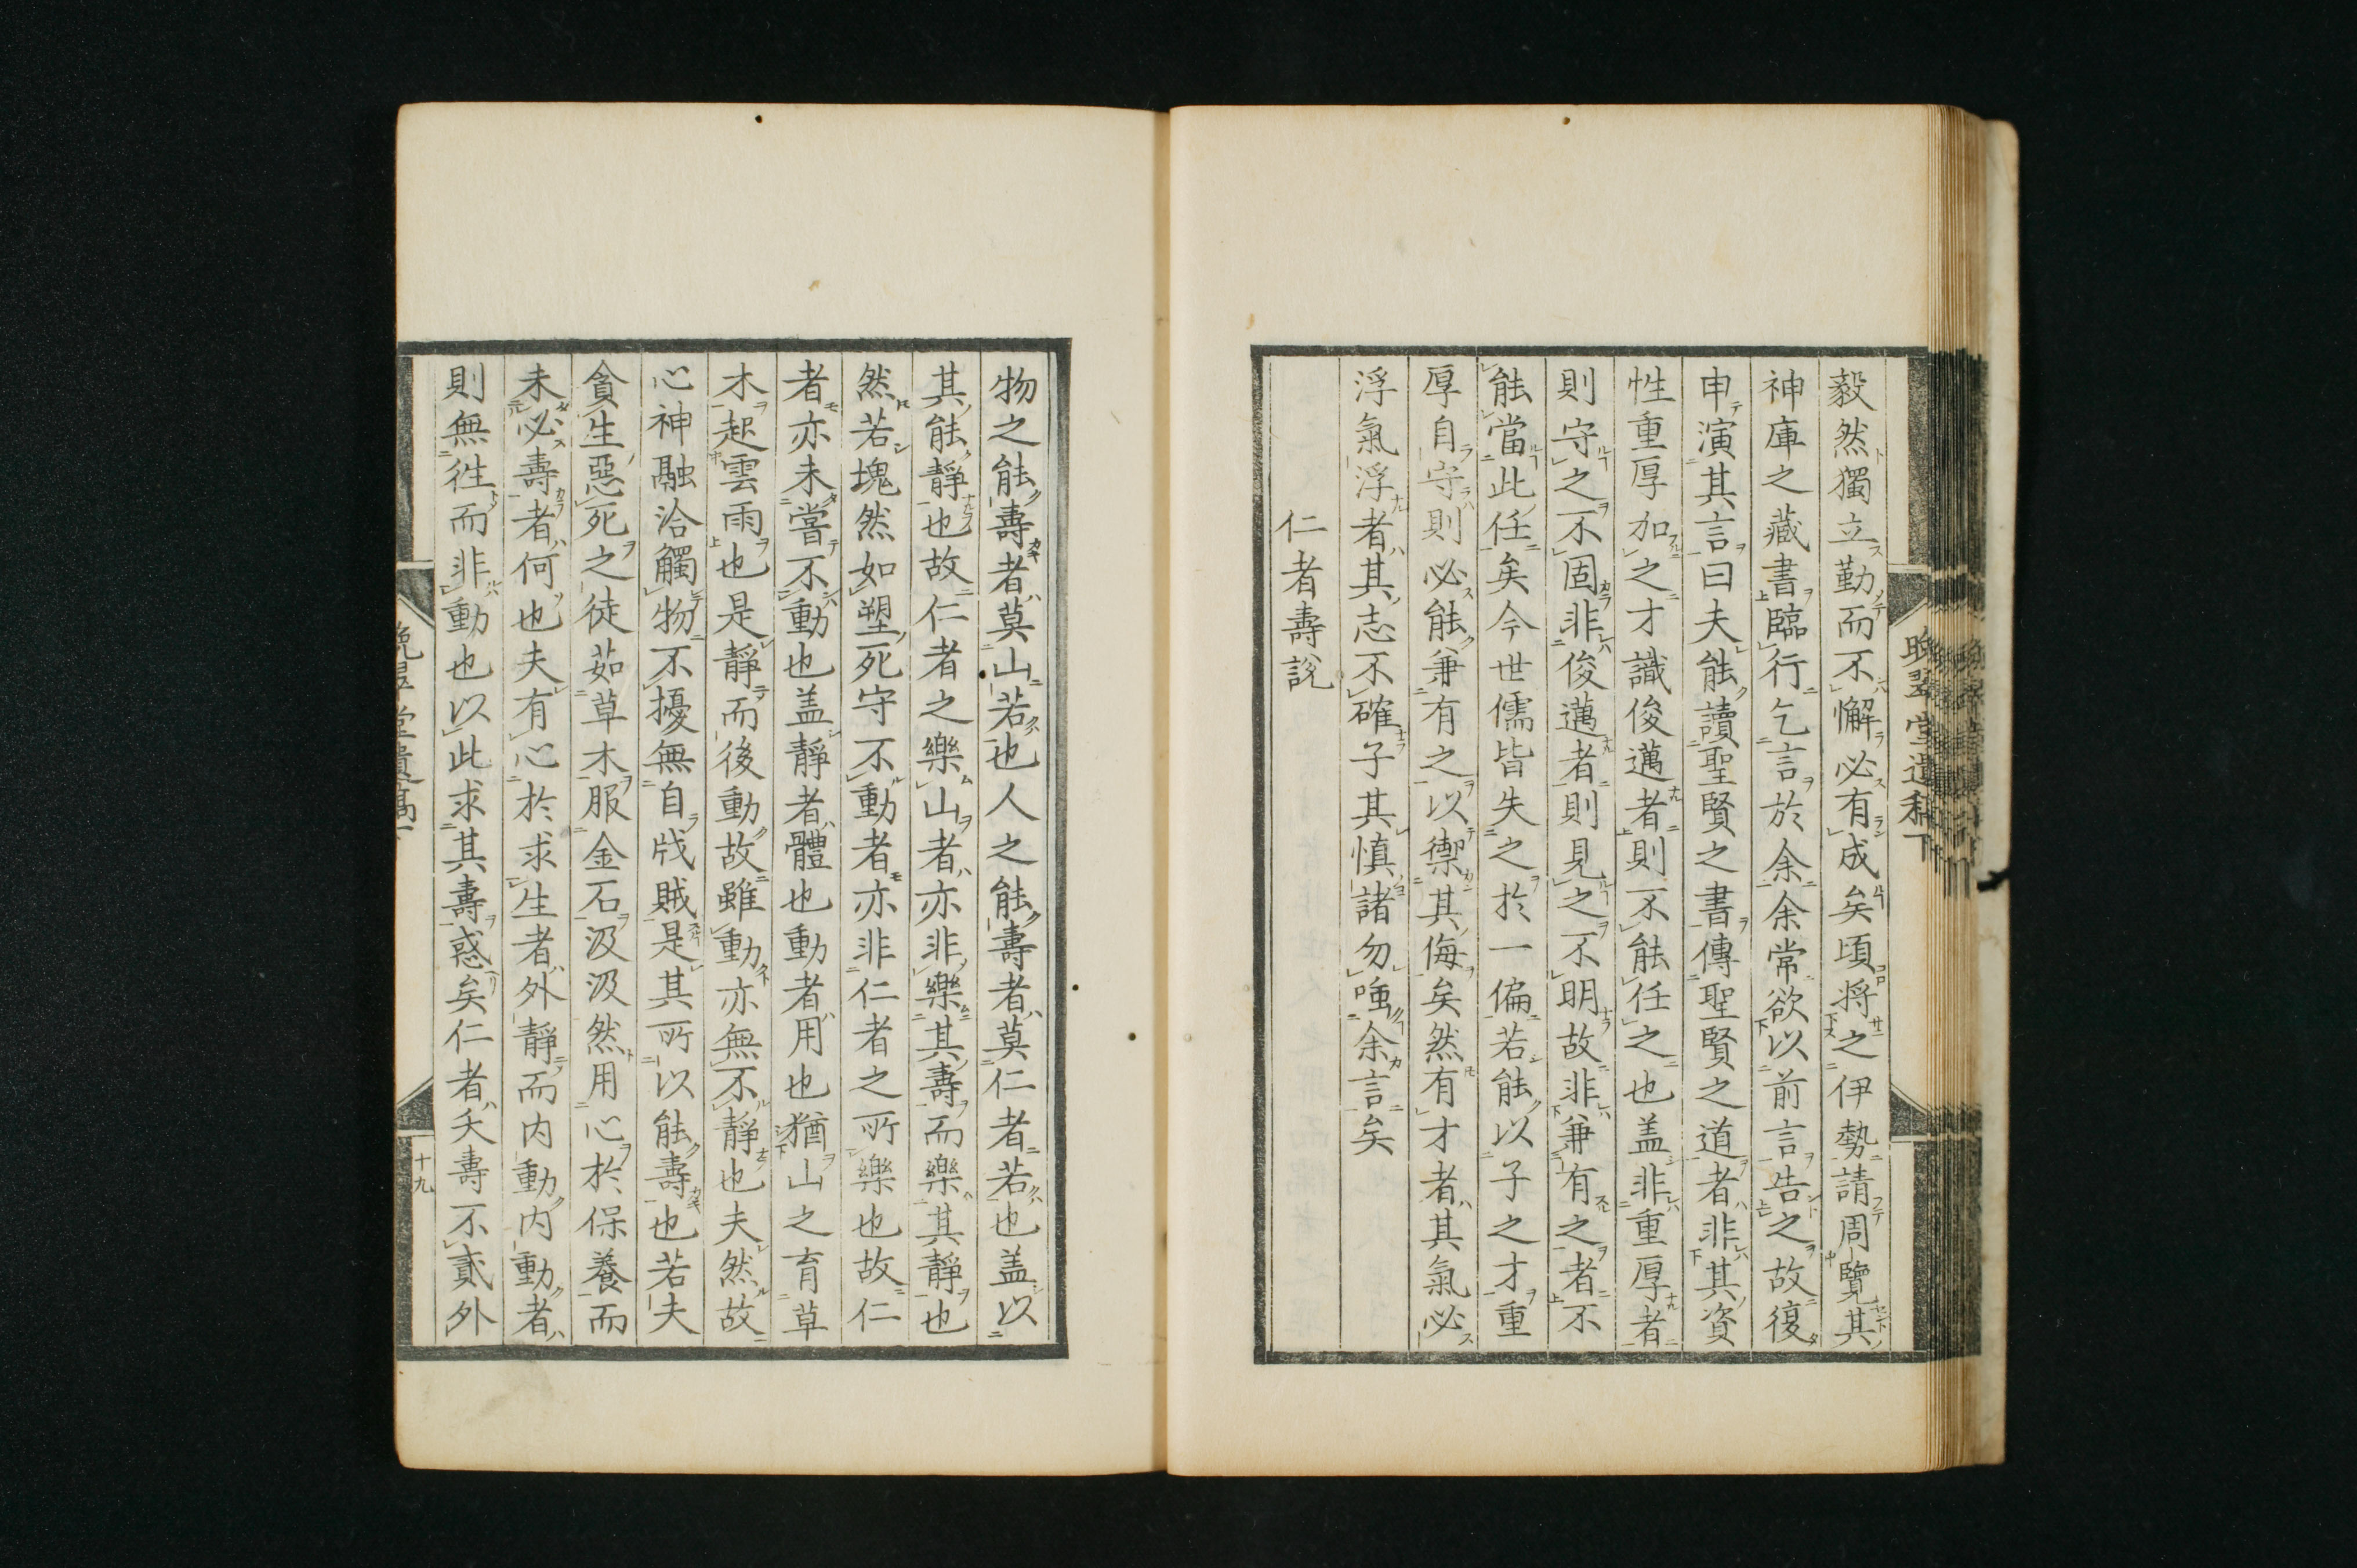 毅然獨立勤而不懈必有成矣頃將之伊勢請周覽其
神庫之藏書臨行乞言於余余常欲以前言告之故復
申演其言曰夫能讀聖賢之書傳聖賢之道者非其資
性重厚加之才識俊邁者則不能任之也盖非重厚者
則守之不固非俊邁者則見之不明故非兼有之者不
能當此任矣今世儒皆失之於一偏若能以子之才重
厚自守則必能兼有之以禦其侮矣然有才者其氣必
浮氣浮者其志不確子其慎諸勿嗤余言矣
仁者壽說
物之能壽者莫山若也人之能壽者莫仁者若也盖以
其能靜也故仁者之樂山者亦非樂其壽而樂其靜也
然若塊然如塑死守不動者亦非仁者之所樂也故仁
者亦未嘗不動也盖靜者體也動者用也猶山之育草
木起雲雨也是靜而後動故雖動亦無不靜也夫然故
心神融洽觸物不擾無自戕賊是其所以能壽也若夫
貪生惡死之徒茹草木服金石汲汲然用心於保養而
未必壽者何也夫有心於求生者外靜而內動內動者
則無往而非動也以此求其壽惑矣仁者夭壽不貳外
晚翠堂遺稿下
十九